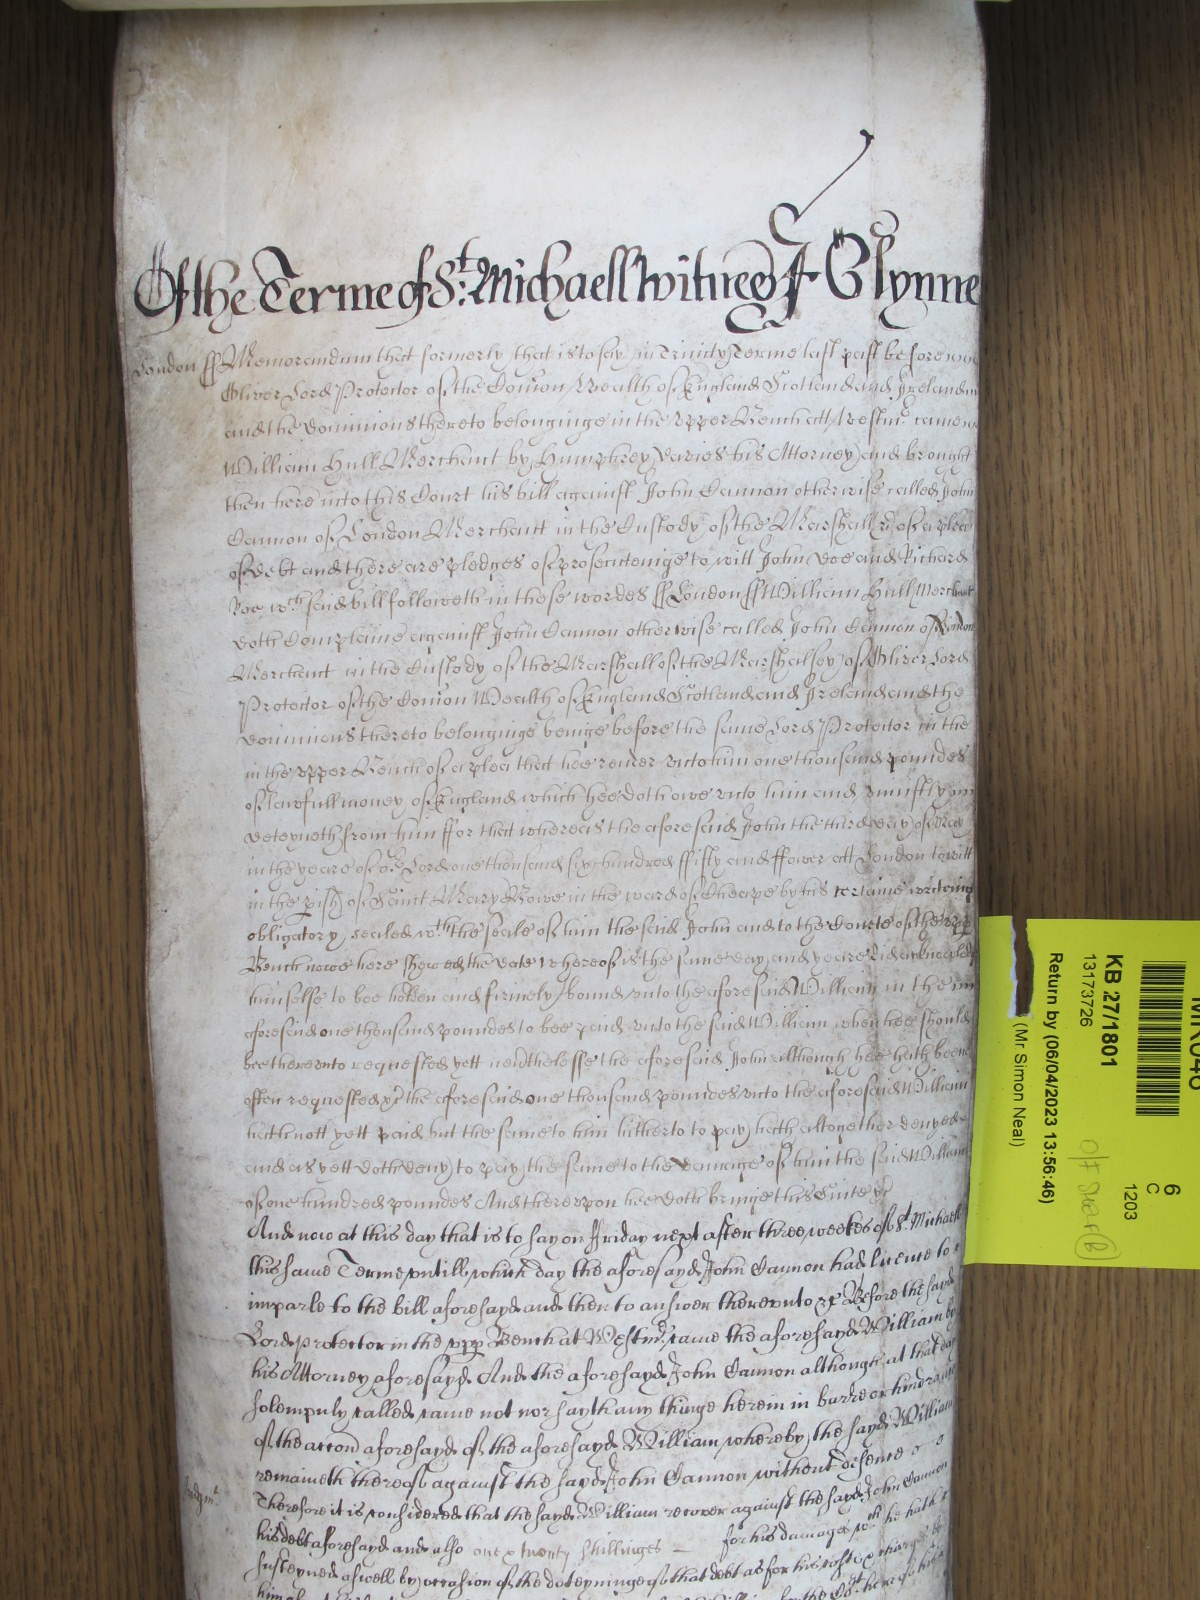 Of the Terme of St: Michaell Witnes J Glynne
London ss Memorandum that formerly that is to say in Trinity Terme last past before
Oliver Lord Protector of the Comon Wealth of England Scotland and Ireland
and the dominions thereto belonginge in the vpper Bench att Westmr came
William Hull Merchant by Humphrey Davies his Attorney and brought
then here into this Court his bill against John Cannon otherwise called John
Cannon of London Merchant in the Custody of the Marshall &c of a plea
of debt and there are pledges of prosecuteinge to witt John Doe and Richard
Roe wch said bill followeth in these wordes ss London ss William Hull Merchant
doth Complaine against John Cannon otherwise called John Cannon of London
Merchant in the Custody of the Marshall of the Marshalsey of Oliver Lord
Protector of the Comon Wealth of England Scotland and Ireland and the
dominions thereto belonginge beinge before the same Lord Protector in the
in the vpper Bench of a plea that hee render vnto him one thousand poundes
of lawfull money of England which hee doth owe vnto him and vniustly
deteyneth from him ffor that whereas the aforesaid John the third day of May
in the yeare of or Lord one thousand six hundred ffifty and ffower att London to witt
in the pish of Saint Mary Bowe in the ward of Cheape by his certaine writeing
obligatory sealed wth the seale of him the said John and to the Courte of the vpp
Bench nowe here shewed the date whereof is the same day and yeare did acknowledg
himselfe to bee holden and firmely bound vnto the aforesaid William in the
aforesaid one thousand poundes to bee paid vnto the said William when hee should
bee therevnto requested yett neverthelesse the aforesaid John although hee hath beene
often requested &c the aforesaid one thousand poundes vnto the aforesaid William
hath nott yett paid but the same to him hitherto to pay hath altogether denyed
and as yett doth deny to pay the same to the damage of him the said William
of one hundred poundes And therevpon hee doth bringe this Suite &c
And now at this day that is to say on ffriday next after three weekes of St Michaell
this same Terme vntill which day the aforesayd John Cannon had licence to
imparle to the bill aforesayd and then to answer therevnto &c Before the sayd
Lord protector in the vpp Bench at Westmr came the aforesayd William by
his Attorney aforesayd And the aforesayd John Cannon although at that day
solempnly called came not nor sayth any thinge herein in barre or hindrance
of the accon aforesayd of the aforesayd William whereby the sayd William
remaineth thereof against the sayd John Cannon without defence
Judgmt
Therefore it is considered that the sayd William recover against the sayd John Cannon
his debt aforesayd and also one & twenty shillinges for his damages wch he hath
susteyned aswell by occasion of the deteyninge of that debt as for his costs &
KB 27/1801
13173726
Return by (06/04/2023 13:56:46)
(Mr Simon Neal)
6
C
1203